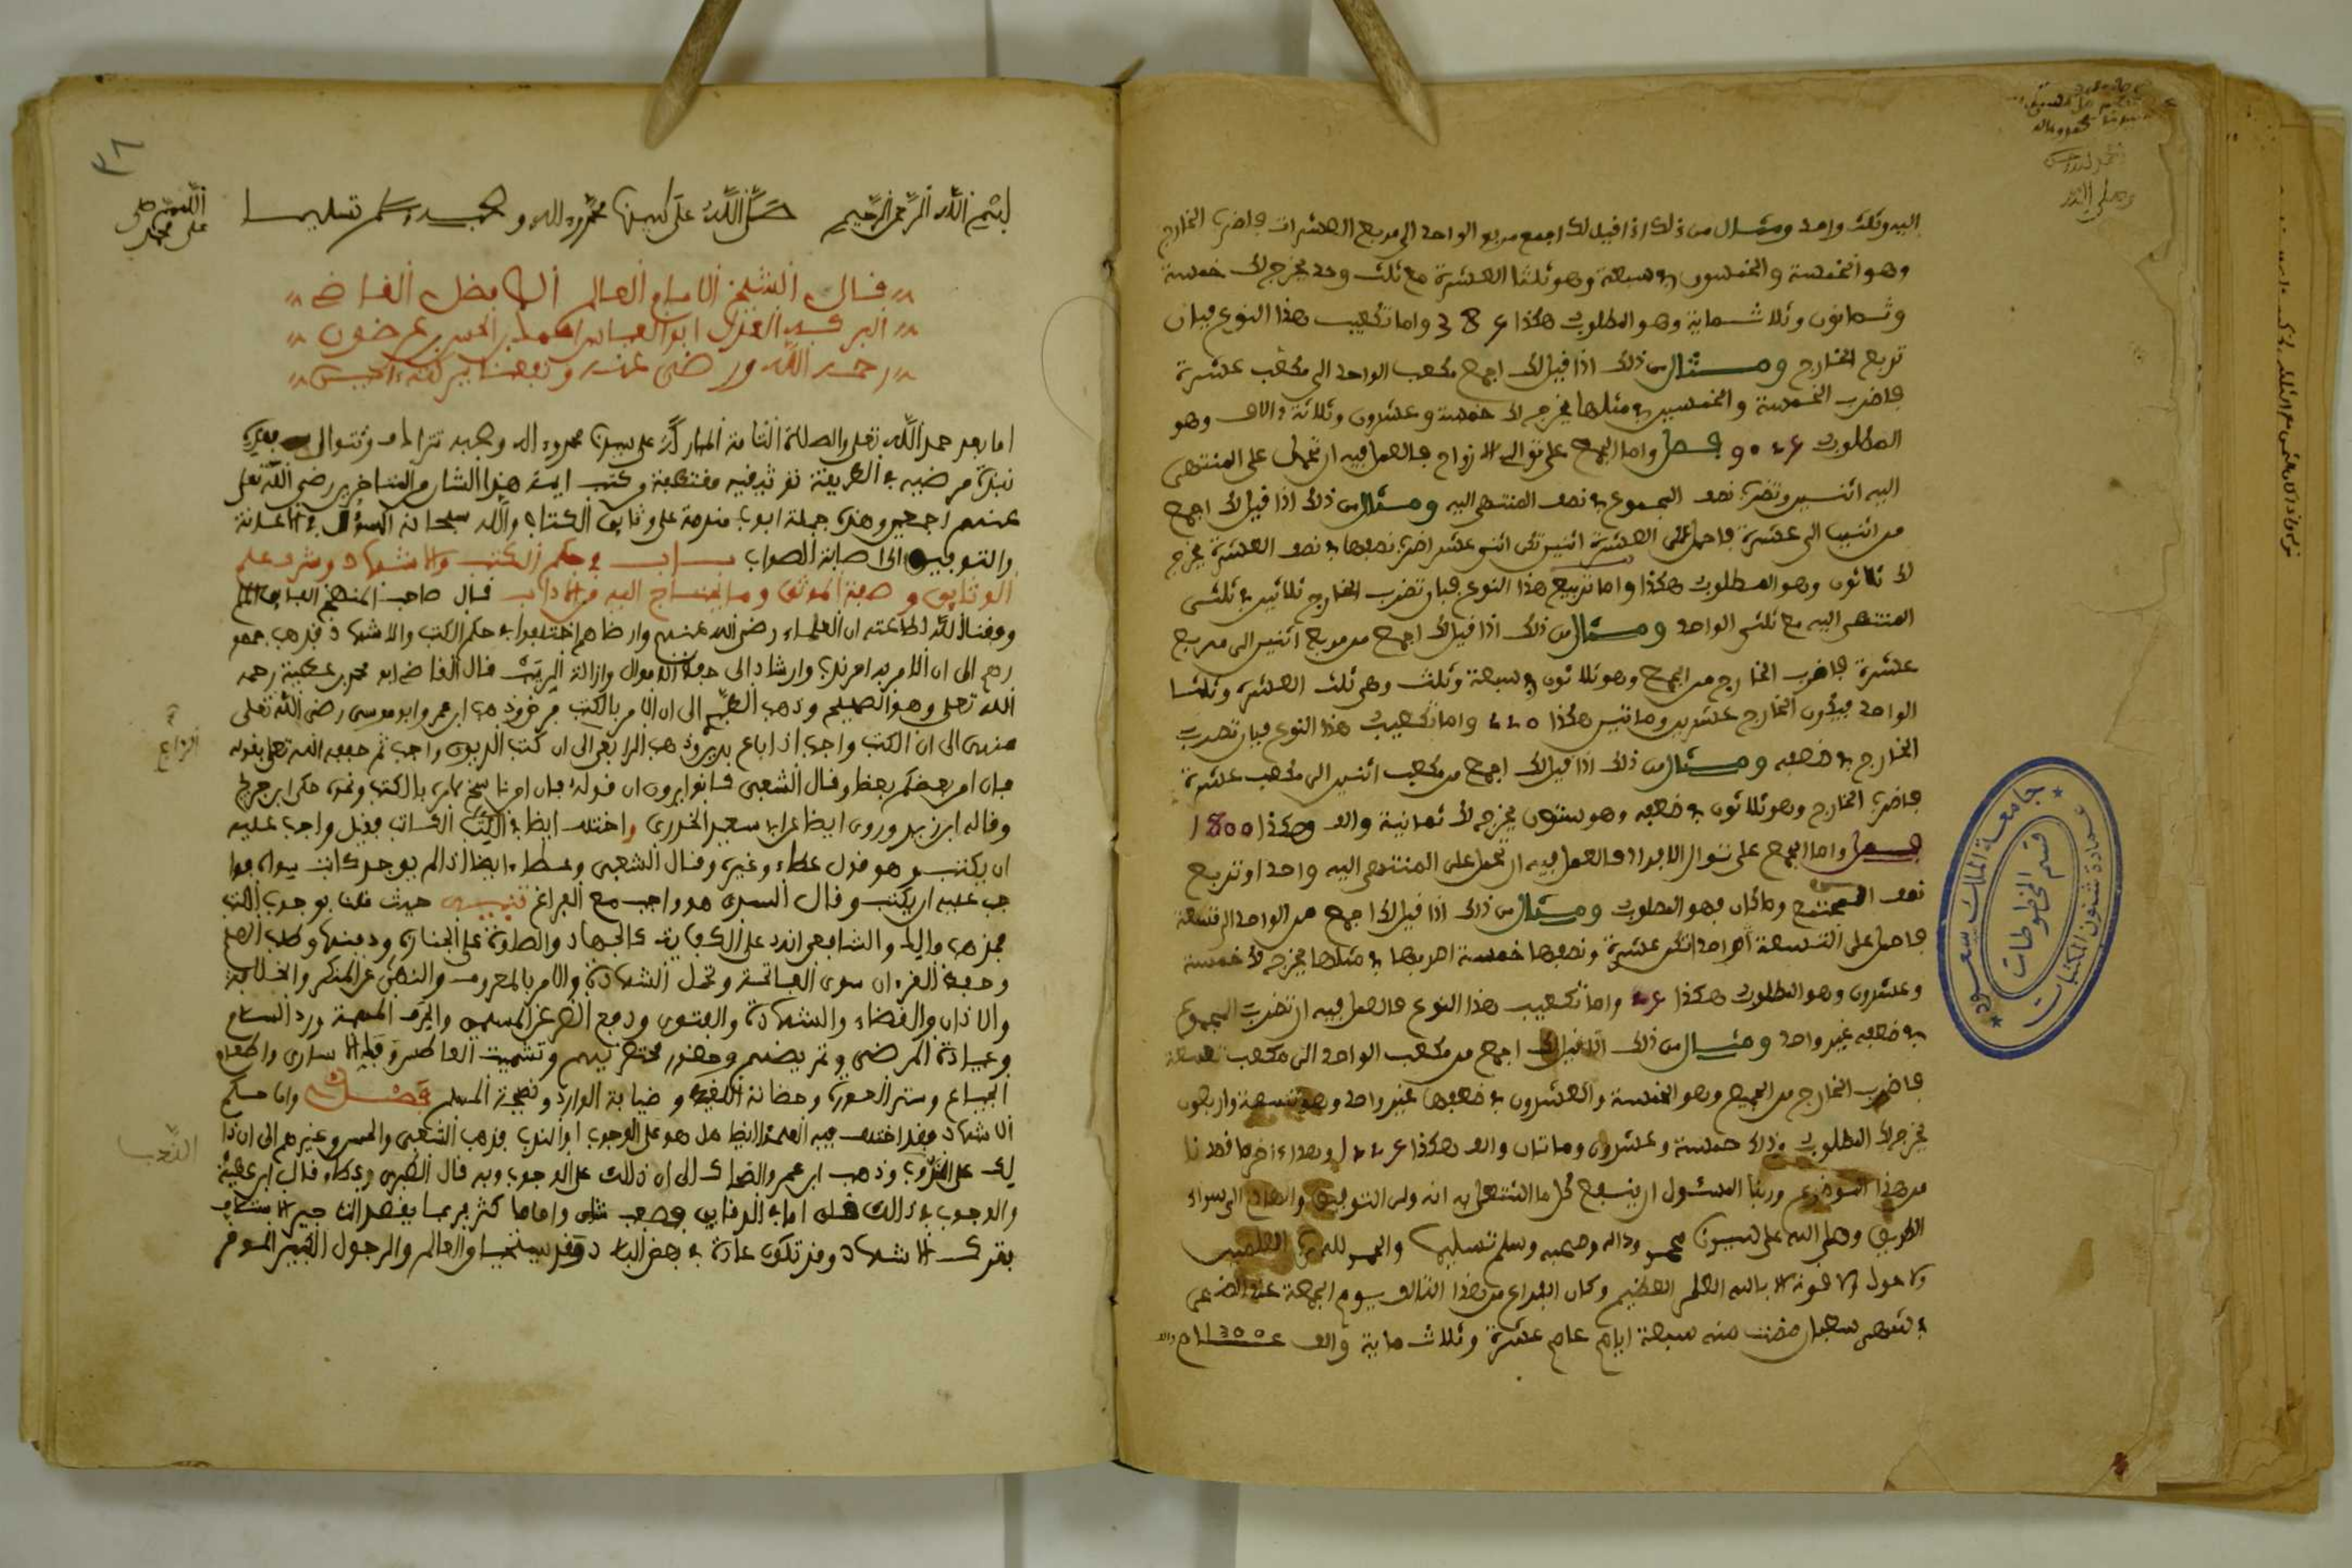 اليه وثلث واحد ومثال من ذلك اذا قيل لك اجمع مربع الواحد الى مربع العشرة فاضرب الخارج
وهو الخمسة والخمسون في سبعة وهو ثلثا العشرة مع ثلث وحد يخرج لك خمسة
وثمانون وثلاثماية وهو المطلوب هكذا 385 واما تكعيب هذا النوع فبان
تربع الخارج ومثال من ذلك اذا قيل لك اجمع مكعب الواحد الى مكعب عشرة
فاضرب الخمسة والخمسين في مثلها يخرج لك خمسة وعشرون وثلاثة ءالاف وهو
المطلوب فصل واما الجمع على توالي الازواج فالعمل فيه ان تحمل على المنتهى
اليه اثنين وتضرب نصف المجموع في نصف المنتهى اليه ومثال من ذلك اذا قيل لك اجمع
من اثنين الى عشرة فاحمل على العشرة اثنين تكن اثني عشر اضرب نصفها في نصف العشرة يخرج
لك ثلاثون وهو المطلوب هكذا واما تربيع هذا النوع فبان تضرب الخارج في ثلثي
المنتهى اليه مع ثلثي الواحد ومثال من ذلك اذا قيل لك اجمع من مربع اثنين الى مربع
عشرة فاضرب الخارج من الجمع وهو ثلاثون في سبعة وثلث وهي ثلثا العشرة وثلثا
الواحد فيكون الخارج عشرين وماتين هكذا 220 واما تكعيب هذا النوع فبان تضرب
الخارج في ضعفه ومثال من ذلك اذا قيل لك اجمع من مكعب اثنين الى مكعب عشرة
فاضرب الخارج وهو ثلاثون في ضعفه وهو ستون يخرج لك ثمانية والف وهكذا 1800
فصل واما الجمع على توالي الافراد فالعمل فيه ان تحمل على المنتهى اليه واحدا وتربع
نصف المجتمع وما كان فهو المطلوب ومثال من ذلك اذا قيل لك اجمع من الواحد الى تسعة
فاحمل على التسعة الواحد تكن عشرة ونصفها خمسة اضربها في مثلها يخرج لك خمسة
وعشرون وهو المطلوب هكذا واما تكعيب هذا النوع فالعمل فيه ان تضرب المجموع
في ضعفه غير واحد ومثال من ذلك اذا قيل لك اجمع من مكعب الواحد الى مكعب تسعة
فاضرب الخارج من الجمع وهو الخمسة والعشرون في ضعفها غير واحد وهو تسعة واربعون
يخرج لك المطلوب وذلك خمسة وعشرون وماتان والف هكذا وهذا ءاخر ما قصدنا
من هذا الموضوع وربنا المسئول ان ينفع كل ما اشتغل به انه ولي التوفيق والهادي الى سواء
الطريق وصلى الله على سيدنا محمد وءاله وصحبه وسلم تسليما والحمد لله رب العلمين
ولا حول ولا قوة الا بالله العلي العظيم وكان الفراغ من هذا التاليف يوم الجمعة عند الضحى
في شهر شعبان مضت منه سبعة ايام عام عشرة وثلاث ماية والف عــام
جامعة الملك سعود
عمادة شئون المكتبات
قسم المخطوطات
٣٦
بسم الله الرحمن الرحيم صلى الله على سيدنا محمد وءاله وصحبه وسلم تسليما
اللهم صل على محمد
قال الشيخ الامام العالم الافضل القاضي
ابو العباس احمد بن الحسن بن عرضون
رحمه الله ورضي عنه ونفعنا ببركته ءامين
اما بعد حمد الله تعلى والصلاة التامة المباركة على سيدنا محمد وءاله وصحبه تترادف وتتوالى فهذه
نبذة مرضية في الطريقة التوثيقية مقتطفة من كتب ايمة هذا الشان والمتاخرين رضي الله تعلى
عنهم اجمعين وهذه جملة ابواب مقدمة على وثايق الكتاب والله سبحانه المسؤل في الاعانة
والتوفيق الى اصابة الصواب بــاب في حكم الكتب والاشهاد وشرف علم
الوثايق وصفة الموثق وما يحتاج اليه من الاداب قال صاحب المنهج الفايق اعلم
وفقنا الله لطاعته ان العلماء رضي الله عنهم وارضاهم اختلفوا في حكم الكتب والاشهاد فذهب جمهو
رهم الى ان الامر به امر ندب وارشاد الى حفظ الاموال وازالة الريب قال القاضي ابو محمد بن عطية رحمه
الله تعلى وهو الصحيح وذهب الطبري الى ان الامر بالكتب فرض وذهب ابن عمر وابو موسى رضي الله تعلى
عنهما الى ان الكتب واجب اذا باع بدين وذهب الربيع الى ان كتب الديون واجب ثم خففه الله تعلى بقوله
فان امن بعضكم بعضا وقال الشعبي كانوا يرون ان قوله فان امن ناسخ لامره بالكتب ونحوه حكى ابن جريج
وقاله ابن زيد وروي ايضا عن ابي سعيد الخدري واختلف ايضا في الكتب الكاتب فقيل واجب عليه
ان يكتب وهو قول عطاء وغيره وقال الشعبي وعطاء ايضا اذا لم يوجد كاتب سواه فوا
جب عليه ان يكتب وقال السدي هو واجب مع الفراغ تنبيه حيث قلنا بوجوب الكتب
فمذهب مالك والشافعي انه على الكفاية كالجهاد والصلاة على الجنازة ودفنها وطلب العلم
وحفظ القرءان سوى الفاتحة وتحمل الشهادة والامر بالمعروف والنهي عن المنكر والخلافة
والاذان والقضاء والشهادة والفتوى ودفع الضرر عن المسلمين والحرف المهمة ورد السلام
وعيادة المرضى وتمريضهم وحضور محتضريهم وتشميت العاطس وفك الاسارى واطعام
الجياع وستر العورة وحضانة اللقيط وضيافة الوارد ونصيحة المسلم فصل واما حكم
الاشهاد فقد اختلف فيه العلماء ايضا هل هو على الوجوب او الندب فذهب الشعبي والحسن وغيرهم الى ان ذا
لك على الندب وذهب ابن عمر والضحاك الى ان ذلك على الوجوب وبه قال الطبري وعطاء قال ابن عطية
والوجوب في ذلك قلق اما في الدقايق فصعب شاق واما ما كثر فربما يقصد التاجر الاستئلاف
بترك الاشهاد وقد تكون عادة في بعض البلاد وقد يستحيا من العالم والرجل الكبير الموقر
الندب